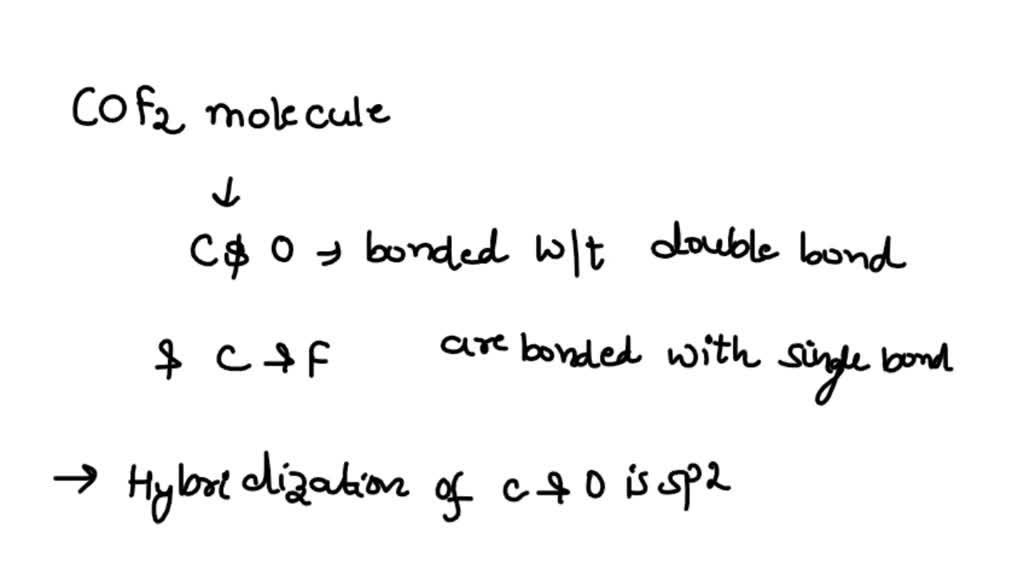 COF2 molecule
↓
C & O → bonded w/t double bond
& C & F are bonded with single bond
→ Hybridization of C & O is sp2